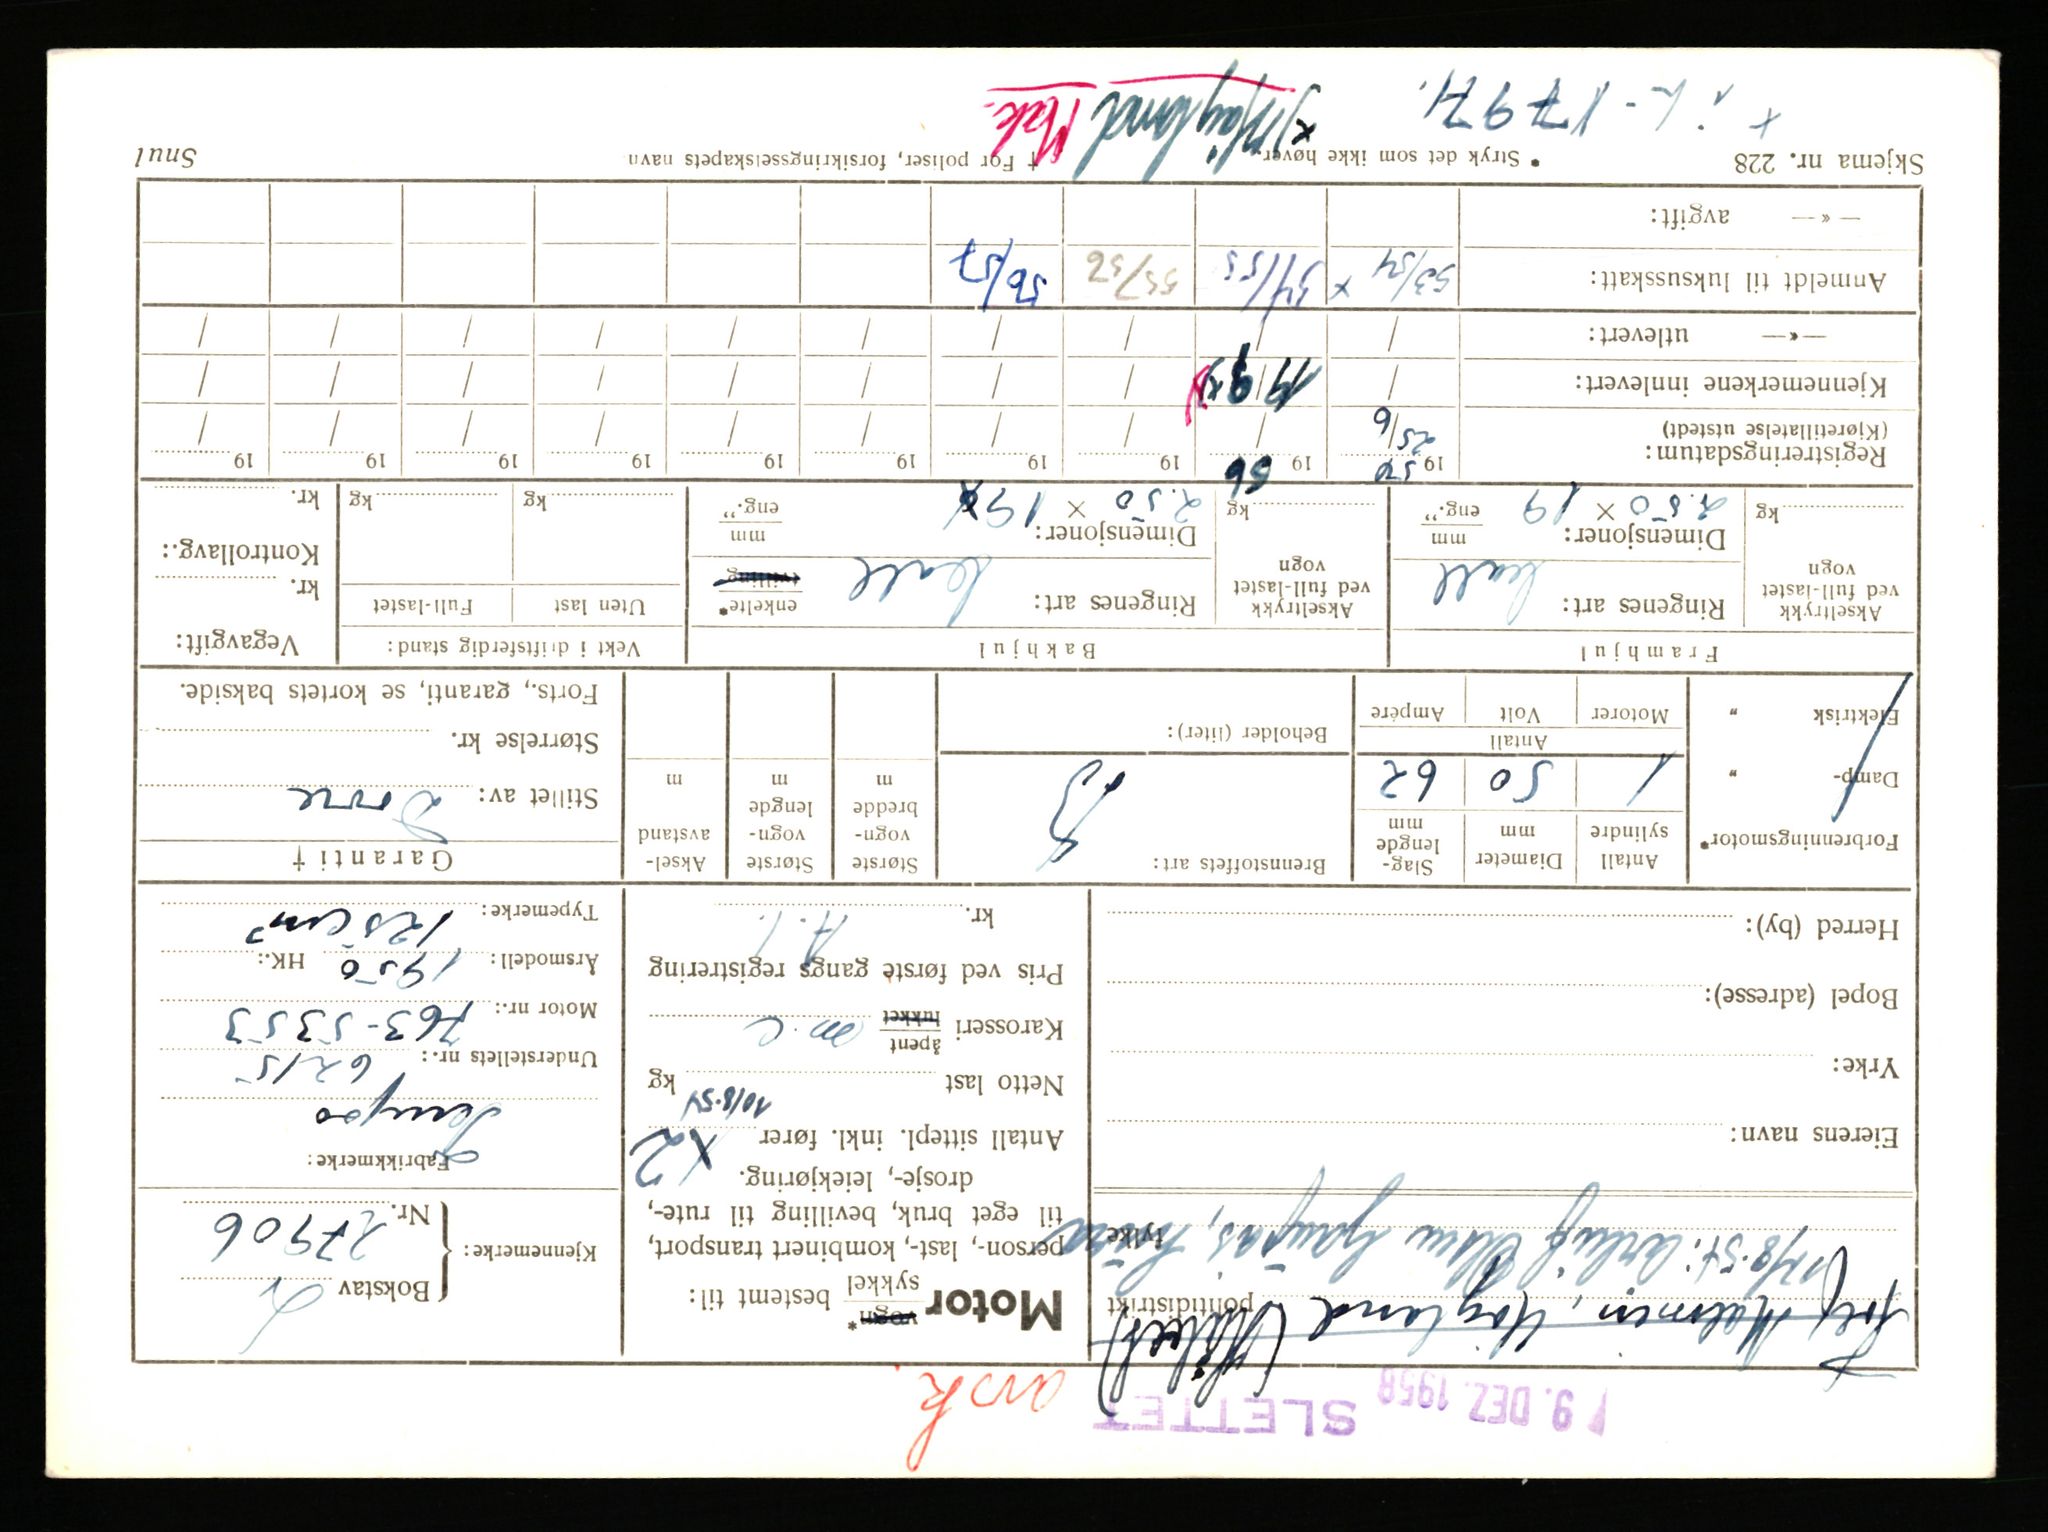 19. DEZ. 1958 SLETTET
avsk
Motor vogn* sykkel bestemt til:
person-, last-, kombinert transport,
til eget bruk, bevilling til rute-,
drosje-, leiekjøring.
Antall sittepl. inkl. fører X2
10/8-54
Netto last kg
Karosseri åpent lukket m.c
Pris ved første gangs registrering
kr.
Kjennemerke: { Bokstav L
Nr. 27906
Fabrikkmerke:
Tempo
Understellets nr.: 6215
Motor nr.: 763-5353
Årsmodell: 1950 HK.:
Typemerke: 125 cm³
politidistrikt
stykke
Eierens navn:
Yrke:
Bopel (adresse):
Herred (by):
Forbrenningsmotor*
Damp- „
Elektrisk „
Antall sylindre 1
Diameter mm 50
Slaglengde mm 62
Antall
Motorer Volt Ampére
Brennstoffets art: B
Beholder (liter):
Største vogn-bredde m
Største vogn-lengde m
Aksel-avstand m
Garanti †
Stillet av: Dovre
Størrelse kr.
Forts., garanti, se kortets bakside.
Framhjul
Akseltrykk ved full-lastet vogn kg
Ringenes art:
Dimensjoner: 2.50 × 19 mm eng.”
Bakhjul
Akseltrykk ved full-lastet vogn kg
Ringenes art: enkelte* tvilling
Dimensjoner: 2.50 × 19 mm eng.”
Vekt i driftsferdig stand:
Uten last Full-lastet
kg kg
Vegavgift:
kr.
Kontrollavg.:
kr.
Registreringsdatum: 19 50 19 56 19 19 19 19 19 19 19 19
(Kjøretillatelse utstedt) 25/6
Kjennemerkene innlevert: 19/9 x)
—«— utlevert:
Anmeldt til luksusskatt: 53/54 x 54/55 55/56 56/57
—«— avgift:
Skjema nr. 228 * Stryk det som ikke høver. † For poliser, forsikringsselskapets navn Snul
17971.